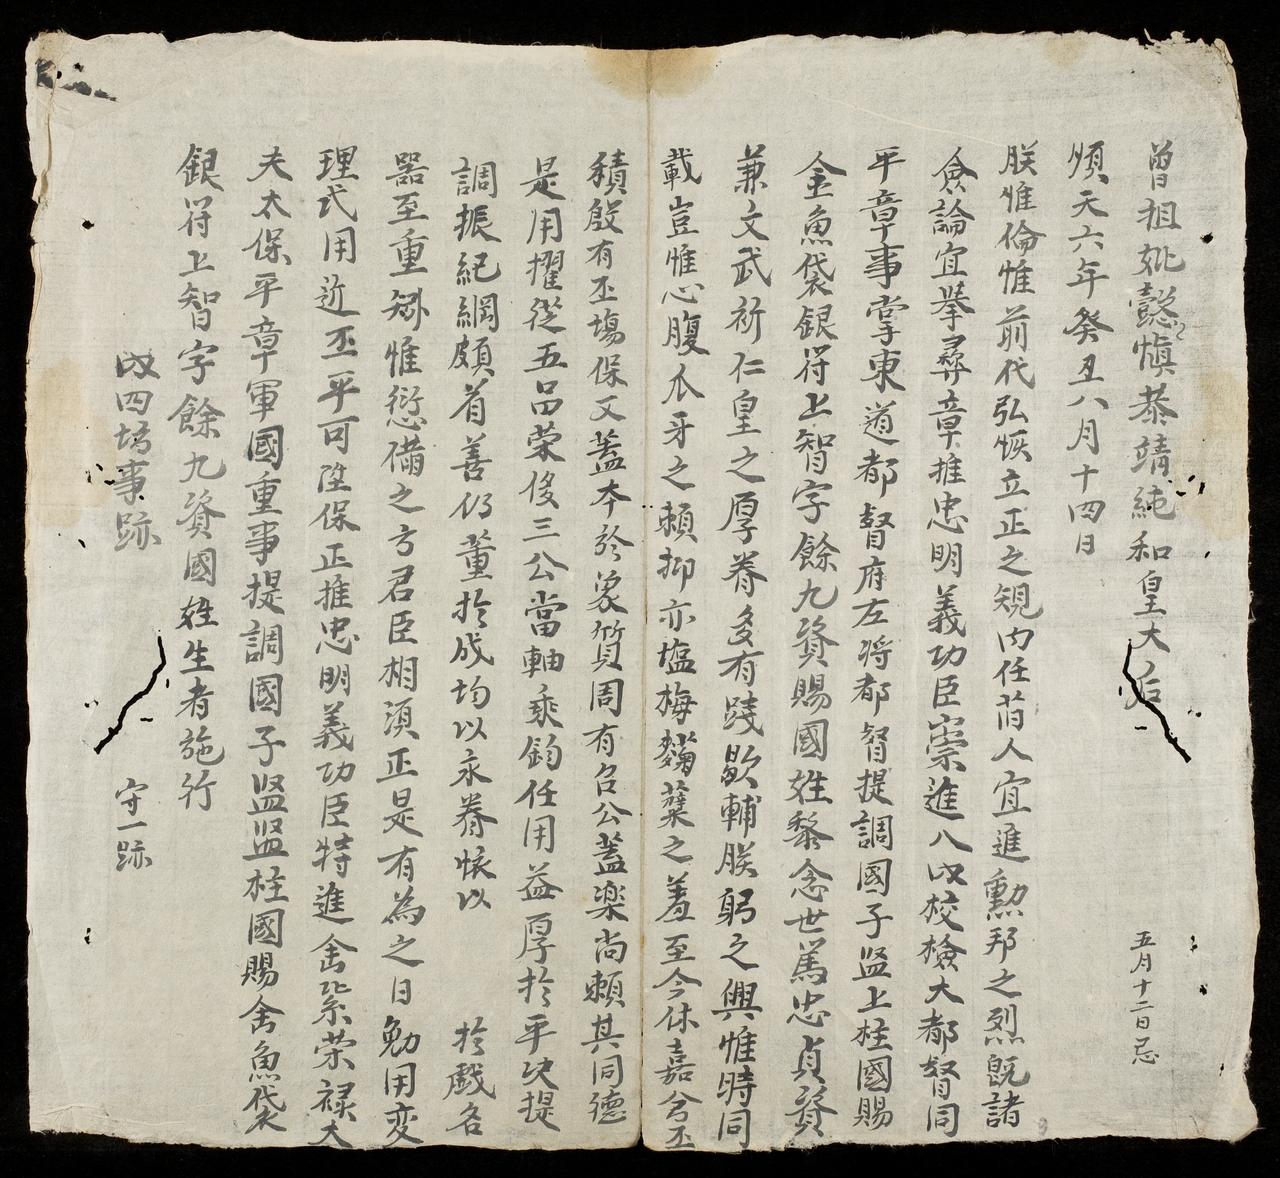 曾祖妣懿慎恭靖純和皇大后 五月十二日忌
順天六年癸丑八月十四日
朕惟倫惟前代弘恢立正之規内任苗人宜進勲邦之烈既諸
僉論宜挙彛章推忠明義功臣崇進入内校檢大都督同
平章事掌東道都督府左将都督提調國子监上柱國賜
金魚袋銀符上智字餘九資賜國姓黎念世篤忠貞資
兼文武祈仁皇之厚眷多有踐歇輔朕躬之興惟時同
載豈惟心腹爪牙之賴抑亦塩梅麴蘗之羞至今休嘉兮丕
積殷有丕塲保乂蓋本於象質周有召公蓋楽尚賴其同德
是用擢從五品荣俊三公當軸乘鈞任用益厚扵平決提
調振紀綱頗着善仍董扵成均以永眷懐以 扵戯名
器至重勑惟愆備之方君臣相須正是有為之日勉用変
理式用近丕平可陞保正推忠明義功臣特進金紫荣禄大
夫太保平章軍國重事提調國子监监柱國賜金魚袋
銀符上智字餘九資國姓生者施行
内四坊事跡 守一跡